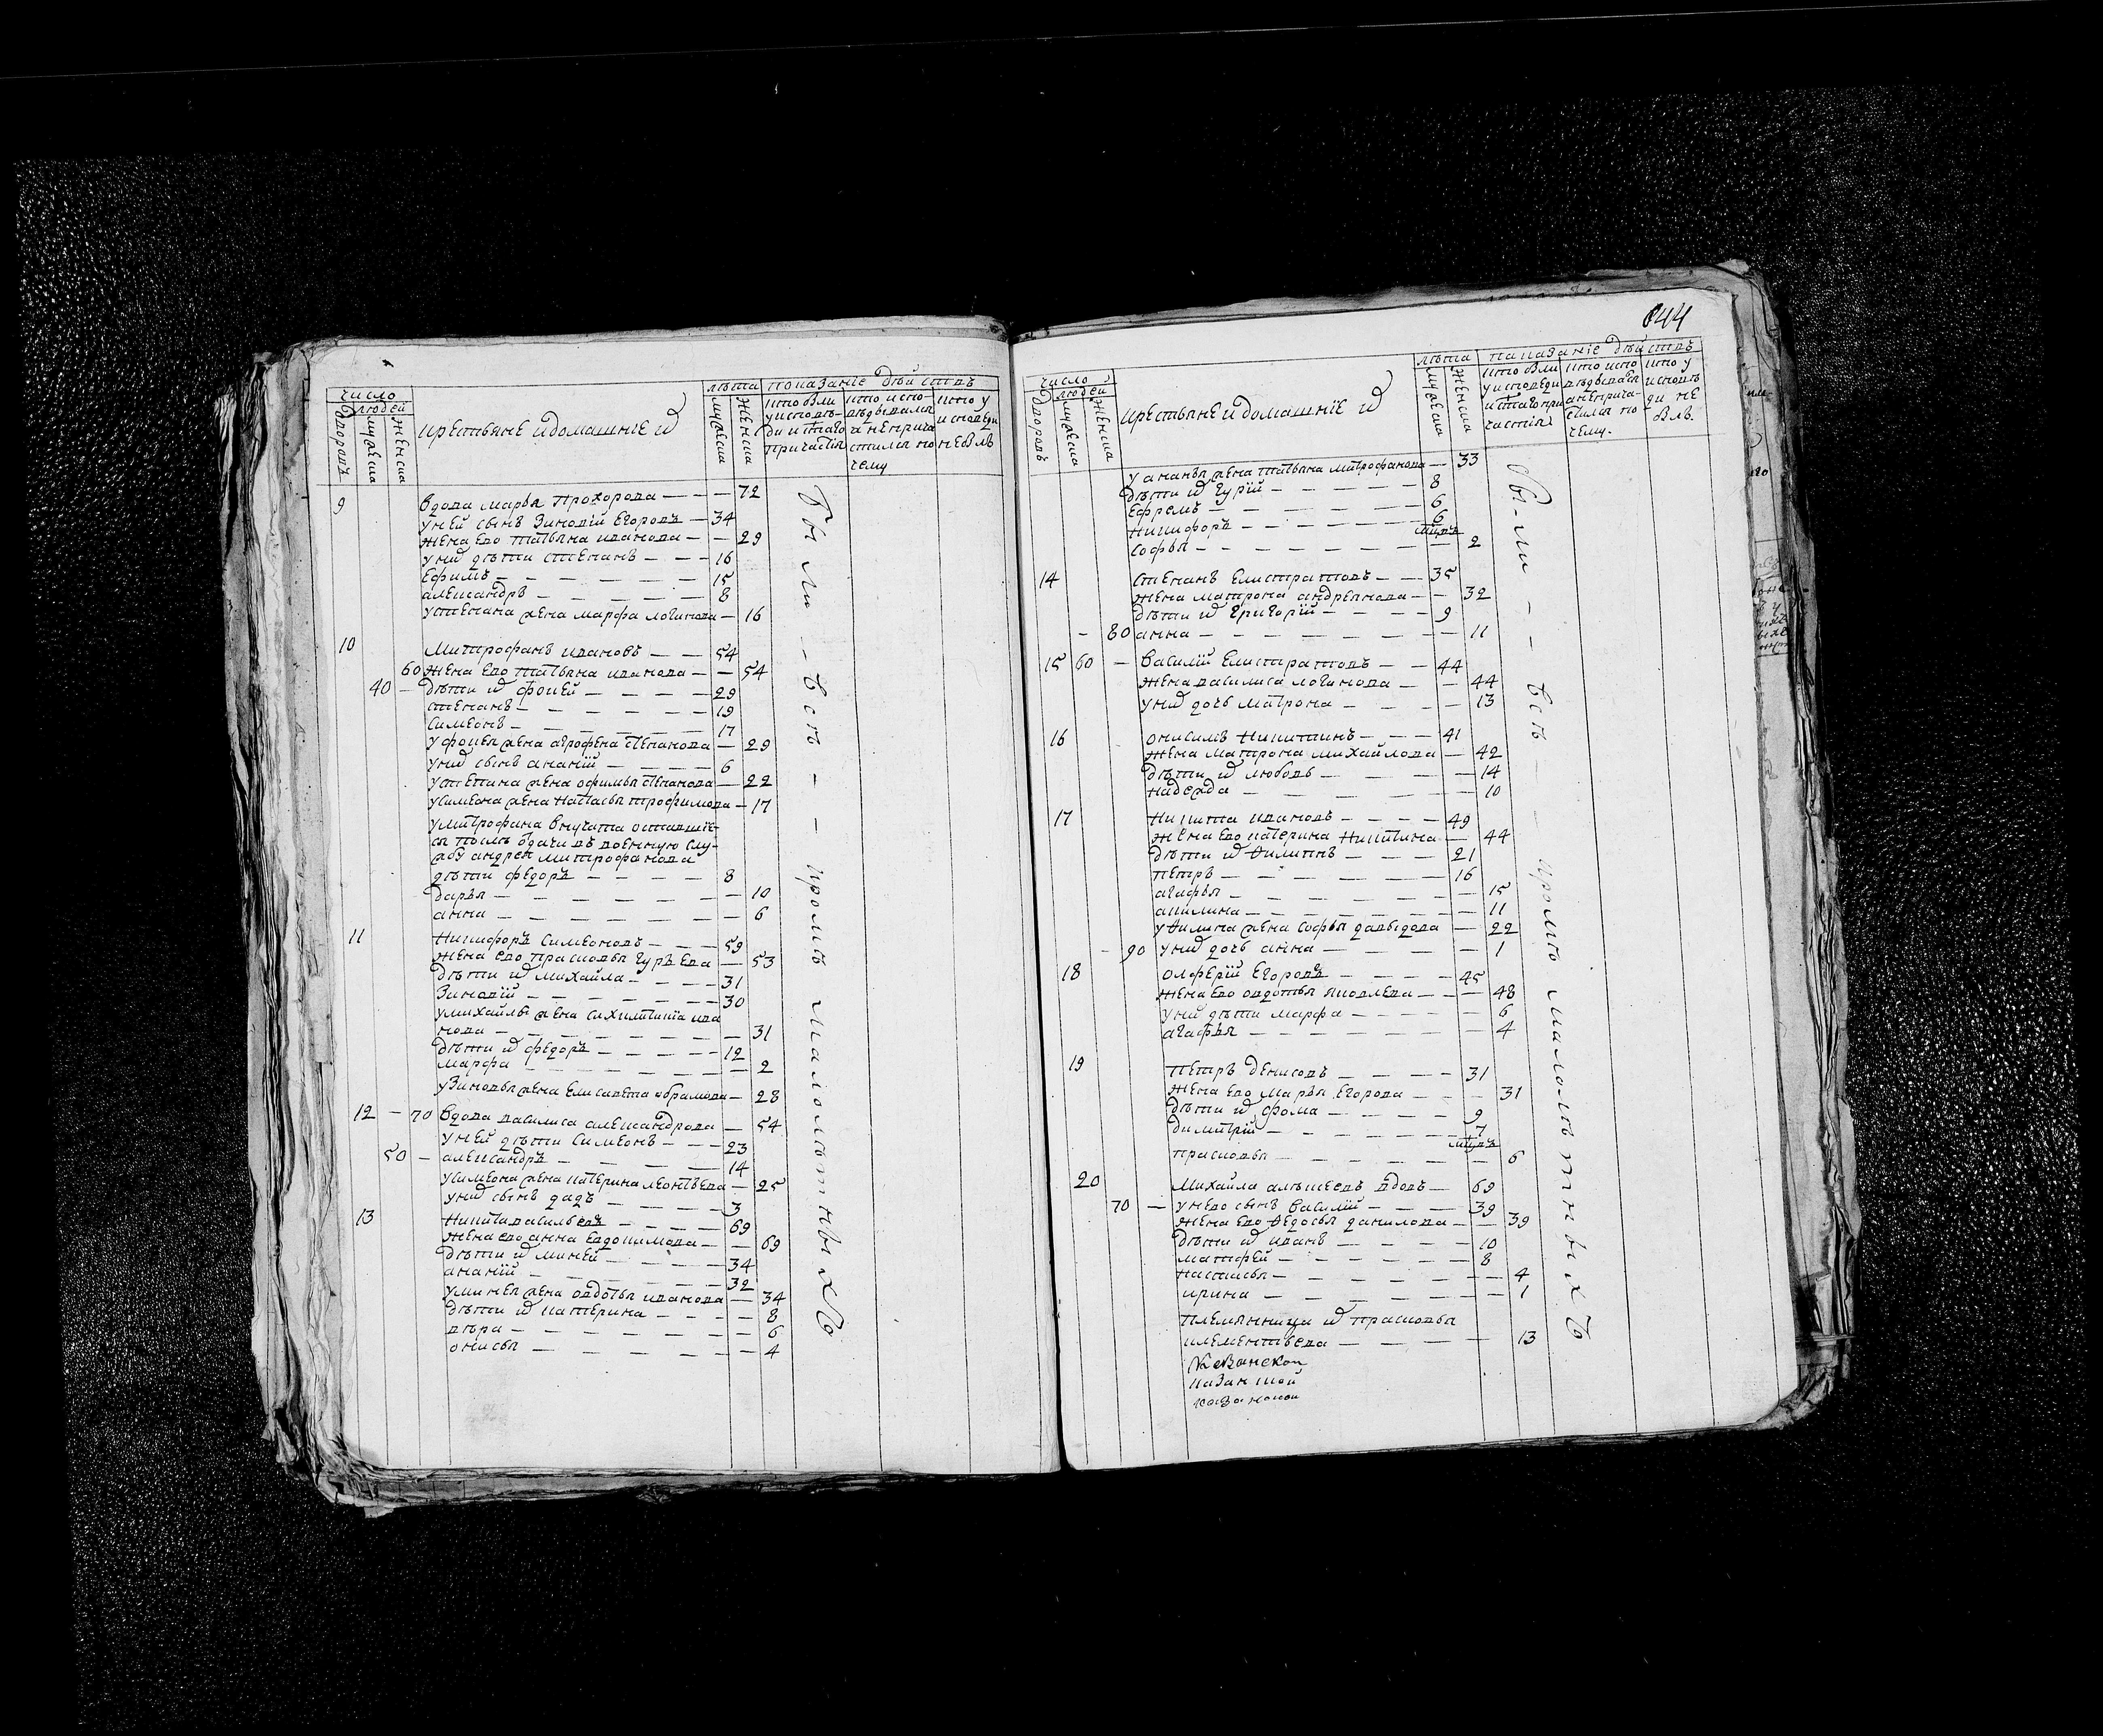 число
людей
дворовъ
мужеска
женска
крестьяне и домашнїе ихъ
лѣта
мужеска
женска
показанїе дѣйствъ
кто были у исповѣди и с̃таго причастїя
кто исповѣдывался а не причастился по чему
кто у исповеди не былъ
9 вдова марья Прохорова — — — 72
у ней сынъ Зиновїй Егоровъ — 34
жена ево татьяна иванова — — 29
у них дѣти степанъ — — — 16
Ефимъ — — — — — — 15
александръ — — — — — 8
у степана жена марфа логинова — 16
10 Митрофанъ ивановъ — — 54
60 жена ево татьяна иванова — — 54
40 — дѣти их фокей — — — — 29
степанъ — — — — — — 19
Симеонъ — — — — — — 17
у фокея жена агрофена степанова — 29
у них сынъ ананїй — — — — 6
у степана жена офимья степанова — 22
у симеона жена настасья трофимова — 17
у митрофана внучата оставшїе-
ся послѣ отдачи въ военную слу-
жбу андрея митрофанова
дѣти федоръ — — — — 8
дарья — — — — — — 10
анна — — — — — — — 6
11 Никифоръ Симеоновъ — — — 59
жена ево прасковья гурьева — 53
дѣти их михайла — — — — 31
Зиновїй — — — — — — 30
у михайлы жена ива
нова — — — — — — — 31
дѣти их федоръ — — — — — 12
марфа — — — — — — — 2
у Зиновья жена елисавета абрамова — 28
12 — 70 вдова василиса александрова — 54
у ней дѣти Симеонъ — — — 23
50 — александръ — — — — — 14
у симеона жена катерина леонтьева — 25
у них сынъ — — — — — 3
13 Никита васильевъ — — — — 69
жена ево анна евдокимова — — 69
дѣти их миней — — — — 34
ананїй — — — — — — — 32
у минея жена овдотья иванова — 34
дѣти их катерина — — — — 8
вѣра — — — — — — — 6
онисья — — — — — — 4
Были — всѣ — — кромѣ малолѣтныхъ
644
число
людей
дворовъ
мужеска
женска
крестьяне и домашнїе их
лѣта
мужеска
женска
показанїе дѣйствъ
кто были у исповеди и с̃таго причастїя
кто исповѣдывался а не причастился по чему.
кто у исповѣди не былъ
у ананья жена татьяна митрофанова — 33
дѣти их гурїй — — — — — 8
Ефремъ — — — — — — 6
никифоръ — — — — — — 6
софья — — — — — — — 2
14 степанъ Елистратовъ — — 35
жена матрона андреянова — — 32
дѣти их григорїй — — — — 9
— 80 анна — — — — — — — 11
15 60 — василїй Елистратовъ — — 44
жена василиса логинова — — 44
у них дочь матрона — — — — 13
16 онисимъ Никитинъ — — — 41
жена матрона михайлова — 42
дѣти их любовь — — — — — 14
надежда — — — — — — 10
17 Никита ивановъ — — — — 49
жена ево катерина никитина — 44
дѣти их Филиппъ — — — 21
петръ — — — — — — 16
агафья — — — — — — 15
акилина — — — — — — 11
у Филипа жена софья давыдова — 22
— 90 у них дочь анна — — — — 1
18 олферїй Егоровъ — — — — 45
жена ево овдотья яковлева — — 48
у них дѣти марфа — — — — 6
агафья — — — — — — — 4
19 петръ денисовъ — — — — 31
жена ево марья Егорова — — — 31
дѣти их фома — — — — — 9
димитрїй — — — — — — 7
прасковья — — — — — — 6
20 михайла алѣшеевъ вдовъ — 69
70 — у нево сынъ василїй — — — 39
жена ево Федосья данилова — — 39
дѣти их иванъ — — — — — 10
матфей — — — — — — 8
настасья — — — — — — 4
ирина — — — — — — — 1
племянница их прасковья
клементьева — — — — 13
Были — — всѣ — — кромѣ малолѣтныхъ